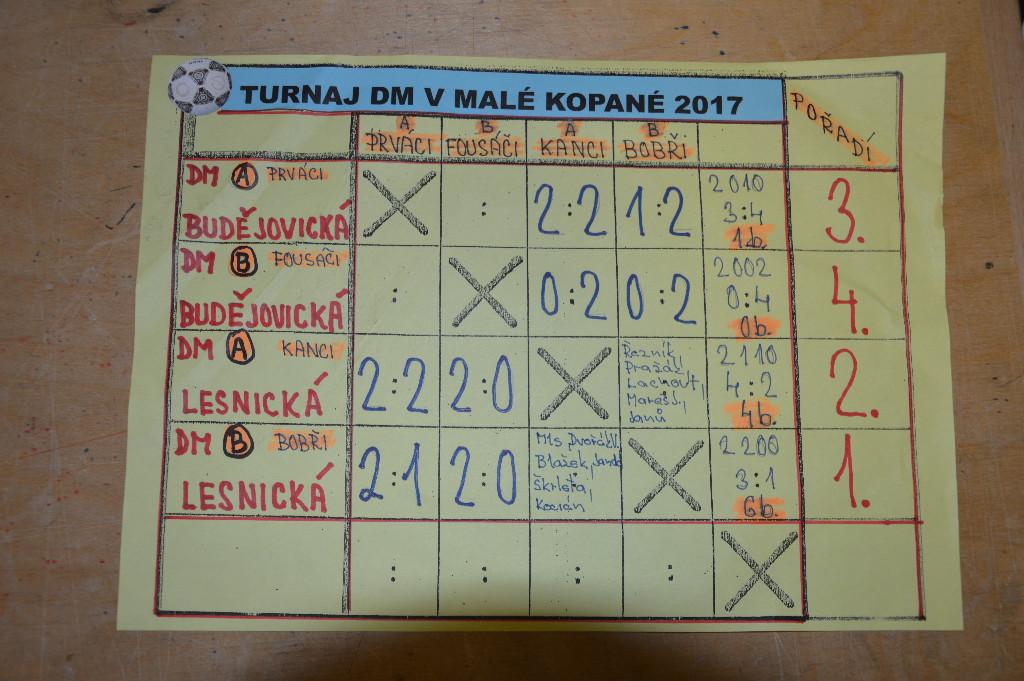 TURNAJ DM V MALÉ KOPANÉ 2017
POŘADÍ
A B A B
PRVÁCI FOUSÁČI KANCI BOBŘI
DM A PRVÁCI
BUDĚJOVICKÁ
: 2:2 1:2
2010
3:4
1b.
3.
DM B FOUSAČI
BUDĚJOVICKÁ
: 0:2 0:2
2002
0:4
0b.
4.
DM A KANCI
LESNICKÁ
2:2 2:0
Řezník,
Pražác
Lachout,
Mareš J.,
Janů
2110
4:2
4b.
2.
DM B BOBŘI
LESNICKÁ
2:1 2:0
Mls, Dvořák V.
Blažek, Janda
Škrleta,
Kocián
2200
3:1
6b.
1.
: : : :